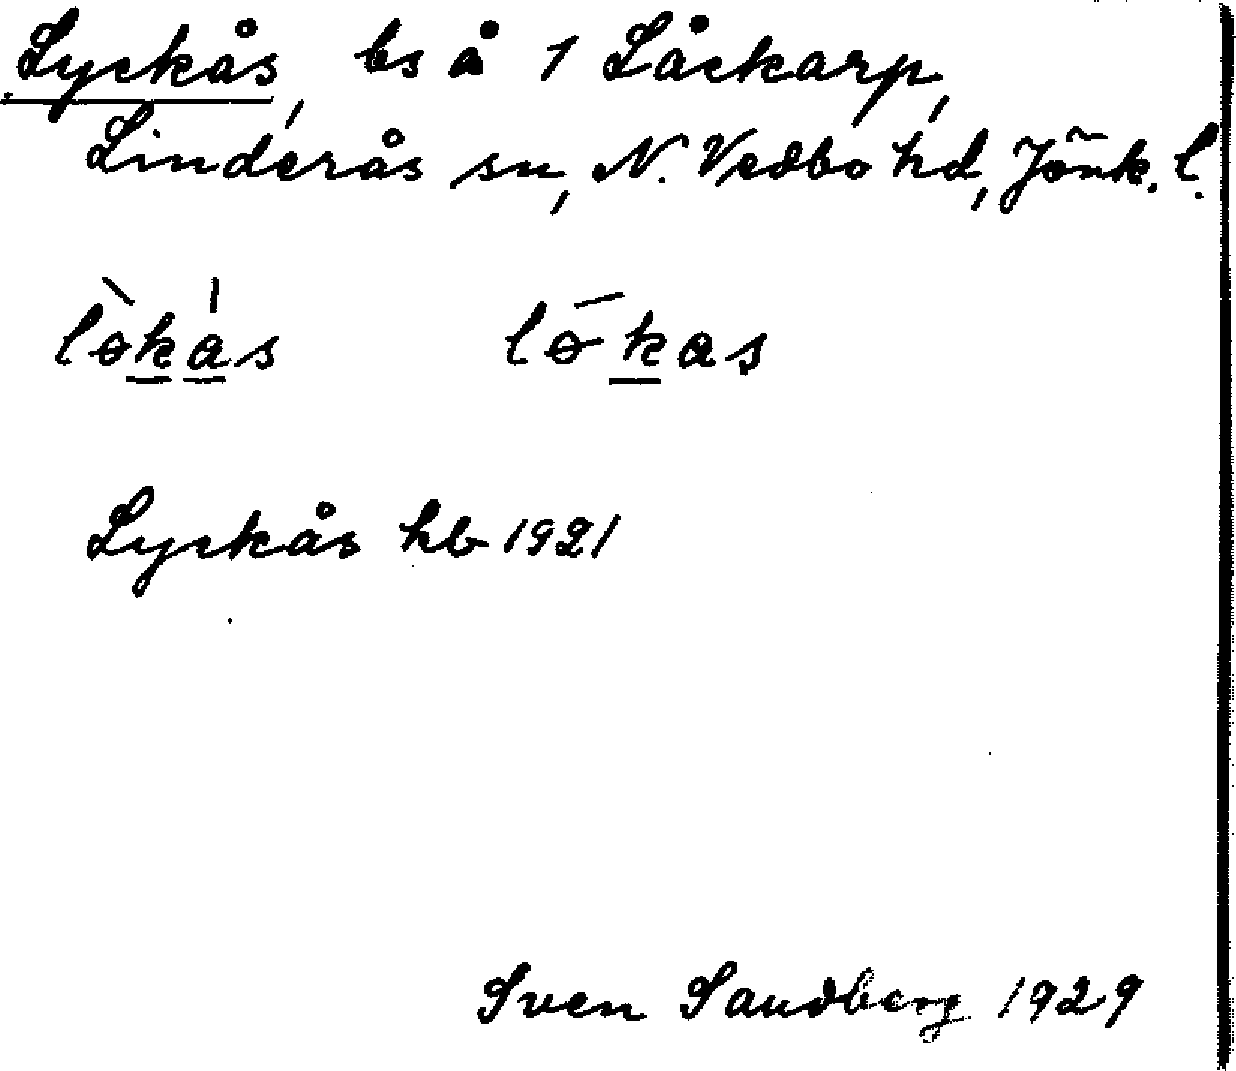 Lyckås, bs å 1 Låckarp,
Linderås sn, N. Vedbo hd, Jönk. l.
lɵ̀ká̱s lɵ́kas
Lyckås hb 1921
Sven Sandberg 1929